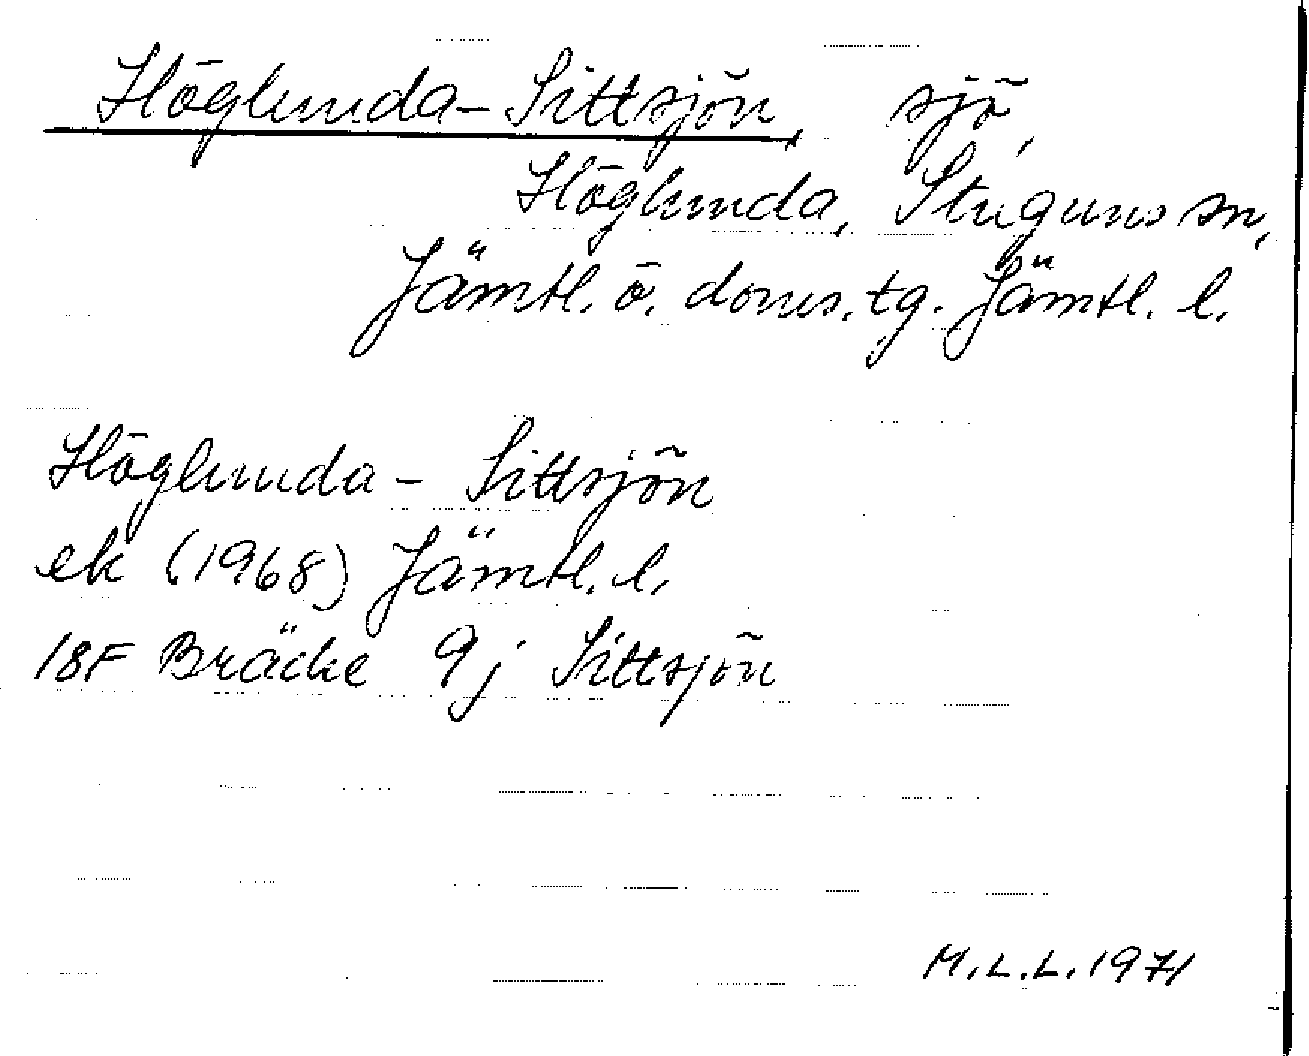 Höglunda-Sittsjön, sjö,
Höglunda, Stuguns sn,
Jämtl. ö. doms. tg. Jämtl. l.
Höglunda- Sittsjön
ek (1968) Jämtl. l.
18F Bräcke 9j Sittsjön
M.L.L. 1971